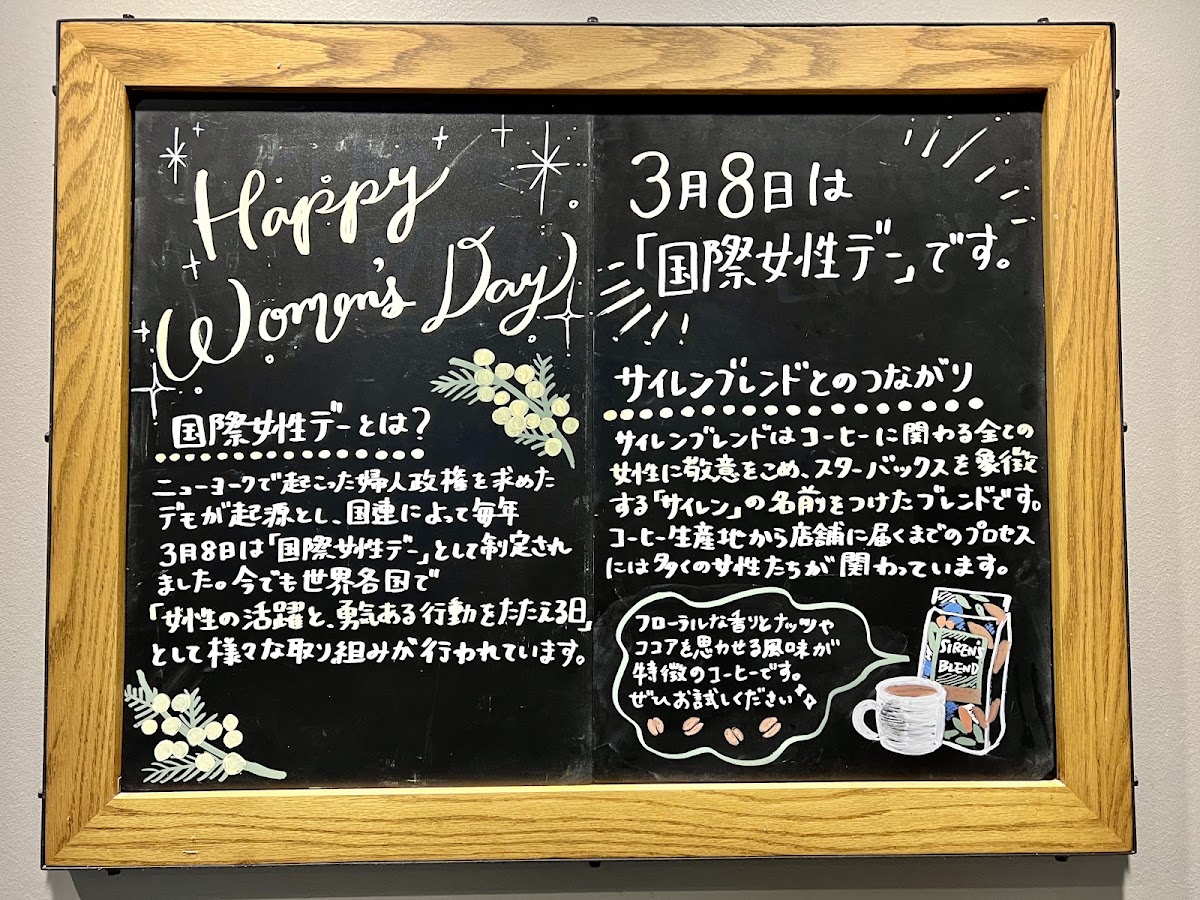 Happy
Women's Day
国際女性デーとは?
ニューヨークで起こった婦人政権を求めた
デモが起源とし、国連によって毎年
3月8日は「国際女性デー」として制定され
ました。今でも世界各国で
「女性の活躍と、勇気ある行動をたたえる日」
として様々な取り組みが行われています。
3月8日は
「国際女性デー」です。
サイレンブレンドとのつながり
サイレンブレンドはコーヒーに関わる全ての
女性に敬意をこめ、スターバックスを象徴
する「サイレン」の名前をつけたブレンドです。
コーヒー生産地から店舗に届くまでのプロセス
には多くの女性たちが関わっています。
フローラルな香りとナッツや
ココアを思わせる風味が
特徴のコーヒーです。
ぜひお試しください
SIREN'S
BLEND